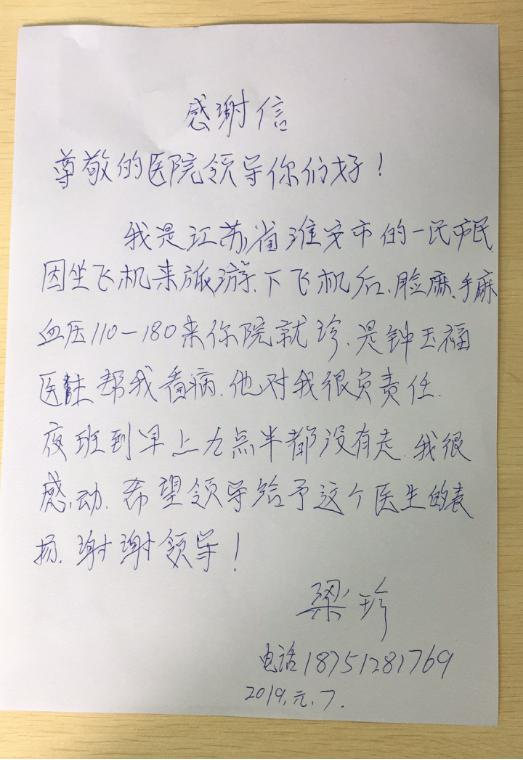 感谢信
尊敬的医院领导你们好！
我是江苏省淮安市的一民市民
因坐飞机来旅游.下飞机后.脸麻.手麻
血压110-180来你院就珍.是钟玉福
医生帮我看病.他对我很负责任.
夜班到早上九点半都没有走.我很
感动.希望领导给予这个医生的表
扬.谢谢领导！
梁珍
电话18751281769
2019.元.7.